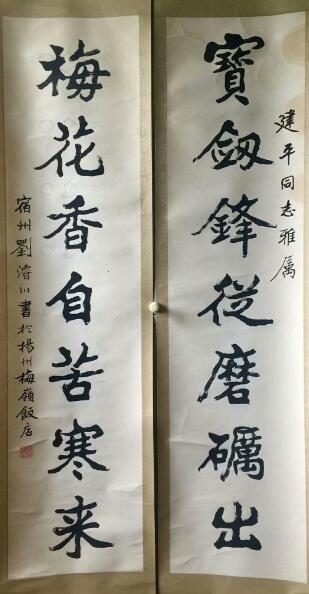 寶劔鋒從磨礪出
建平同志雅属
梅花香自苦寒来
宿州劉濬川書於楊州梅嶺飯店